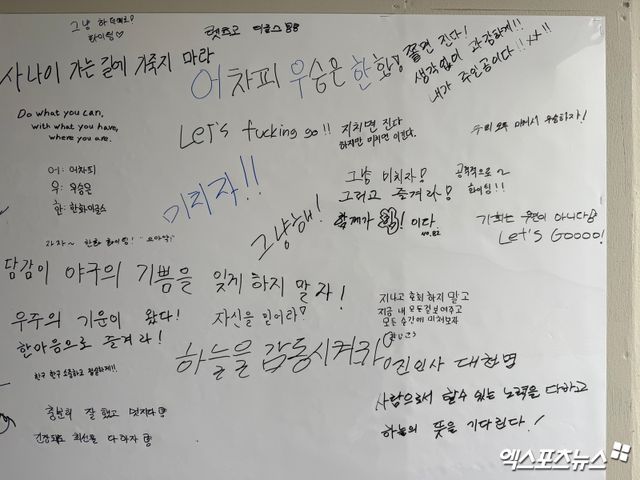 그냥 하던대로?
화이팅♡
렛츠고 이글스
사나이 가는 길에 기죽지 마라
어차피 우승은 한화!
쫄면 진다!
생각없이 과감하게!!
내가 주인공이다!!
Do what you can,
with what you have,
where you are.
Let's fucking go!!
지치면 진다
하지만 미치면 이긴다.
우리 오늘 이겨서 우승하자!
어: 어차피
우: 우승은
한: 한화이글스
미치자!!
그냥 미치자!
그리고 즐겨라!
공격적으로~
화이팅!!
그냥해!
함께가 답! 이다
기회는 우연이 아니다
Let's Goooo!
가자~ 한화 화이팅!
담감이 야구의 기쁨을 잊게 하지 말자!
우주의 기운이 왔다!
한마음으로 즐겨라!
자신을 믿어라?
지나고 후회 하지 말고
지금 내 모든걸 보여주고
모든 순간에 미쳐보자
하늘을 감동시켜라
진인사 대천명
사람으로서 할수 있는 노력을 다하고
하늘의 뜻을 기다린다!
충분히 잘 했고 멋지다
긴장돼도 최선을 다하자
엑스포츠뉴스